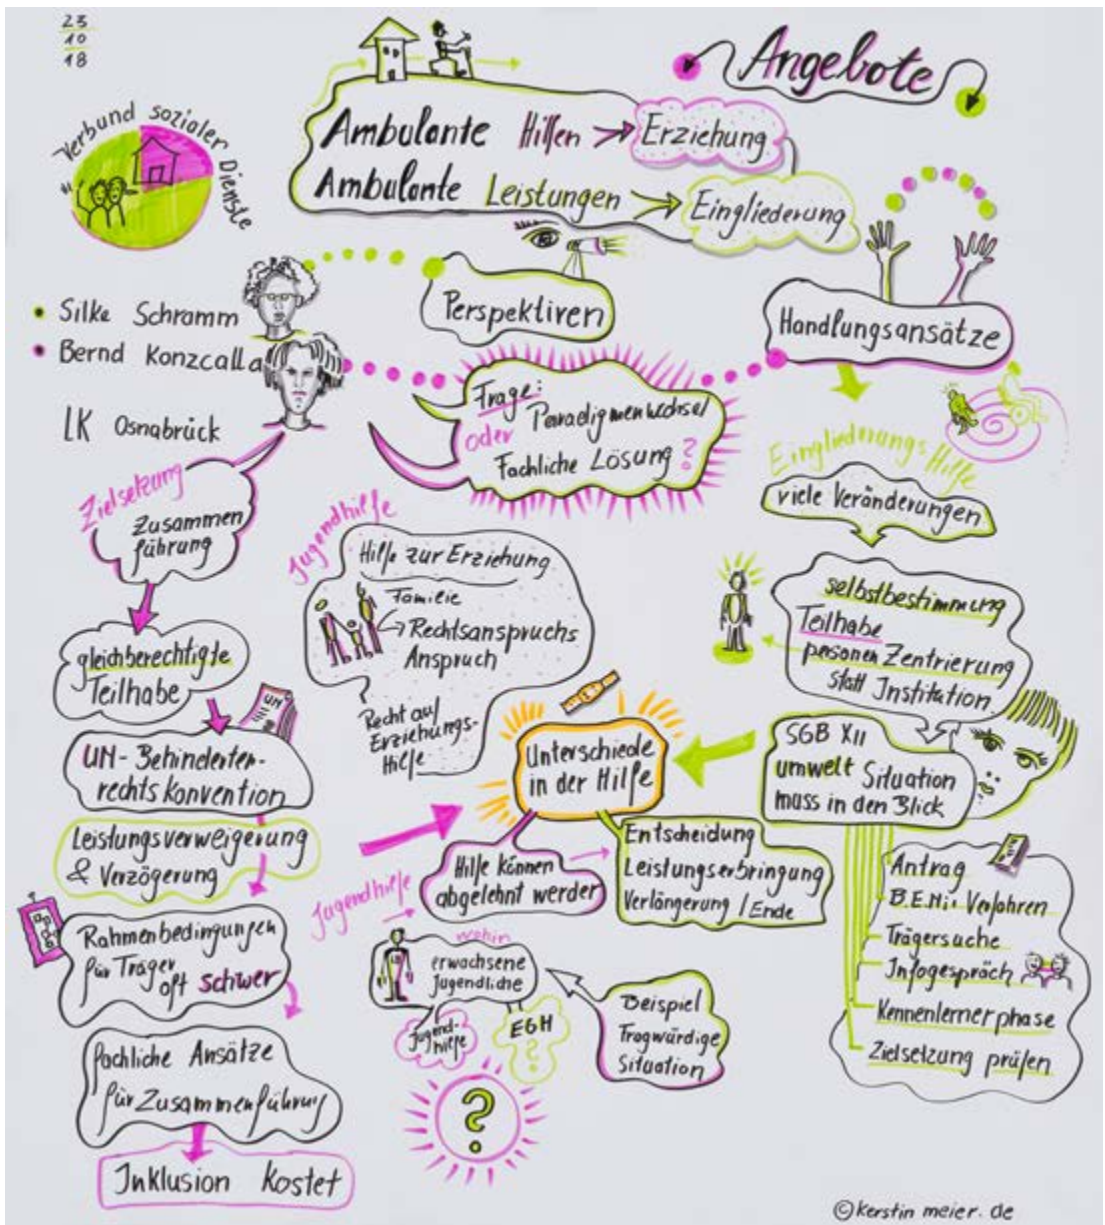 23
10
18
Angebote
Ambulante Hilfen → Erziehung
Ambulante Leistungen → Eingliederung
Verbund sozialer Dienste
• Silke Schramm
• Bernd Konzcalla
LK Osnabrück
Perspektiven
Handlungsansätze
Frage:
Paradigmenwechsel
oder
Fachliche Lösung?
Zielsetzung
Zusammen
führung
gleichberechtigte
Teilhabe
UN
UN-Behinderten-
rechtskonvention
Leistungsverweigerung
& Verzögerung
Rahmenbedingungen
für Träger
oft schwer
fachliche Ansätze
für Zusammenführung
Inklusion kostet
Jugendhilfe
Hilfe zur Erziehung
Familie
Rechtsanspruchs
Anspruch
Recht auf
Erziehungs-
Hilfe
Unterschiede
in der Hilfe
Jugendhilfe
Hilfe können
abgelehnt werden
Entscheidung
Leistungserbringung
Verlängerung / Ende
wohin
erwachsene
Jugendliche
Jugend-
hilfe
EGH
?
?
Beispiel
Fragwürdige
Situation
?
Eingliederungs
Hilfe
viele Veränderungen
selbstbestimmung
Teilhabe
personen Zentrierung
statt Institution
SGB XII
umwelt Situation
muss in den Blick
Antrag
B.E.Ni. Verfahren
Trägersuche
Infogespräch
Kennenlernerphase
Zielsetzung prüfen
© kerstin meier. de